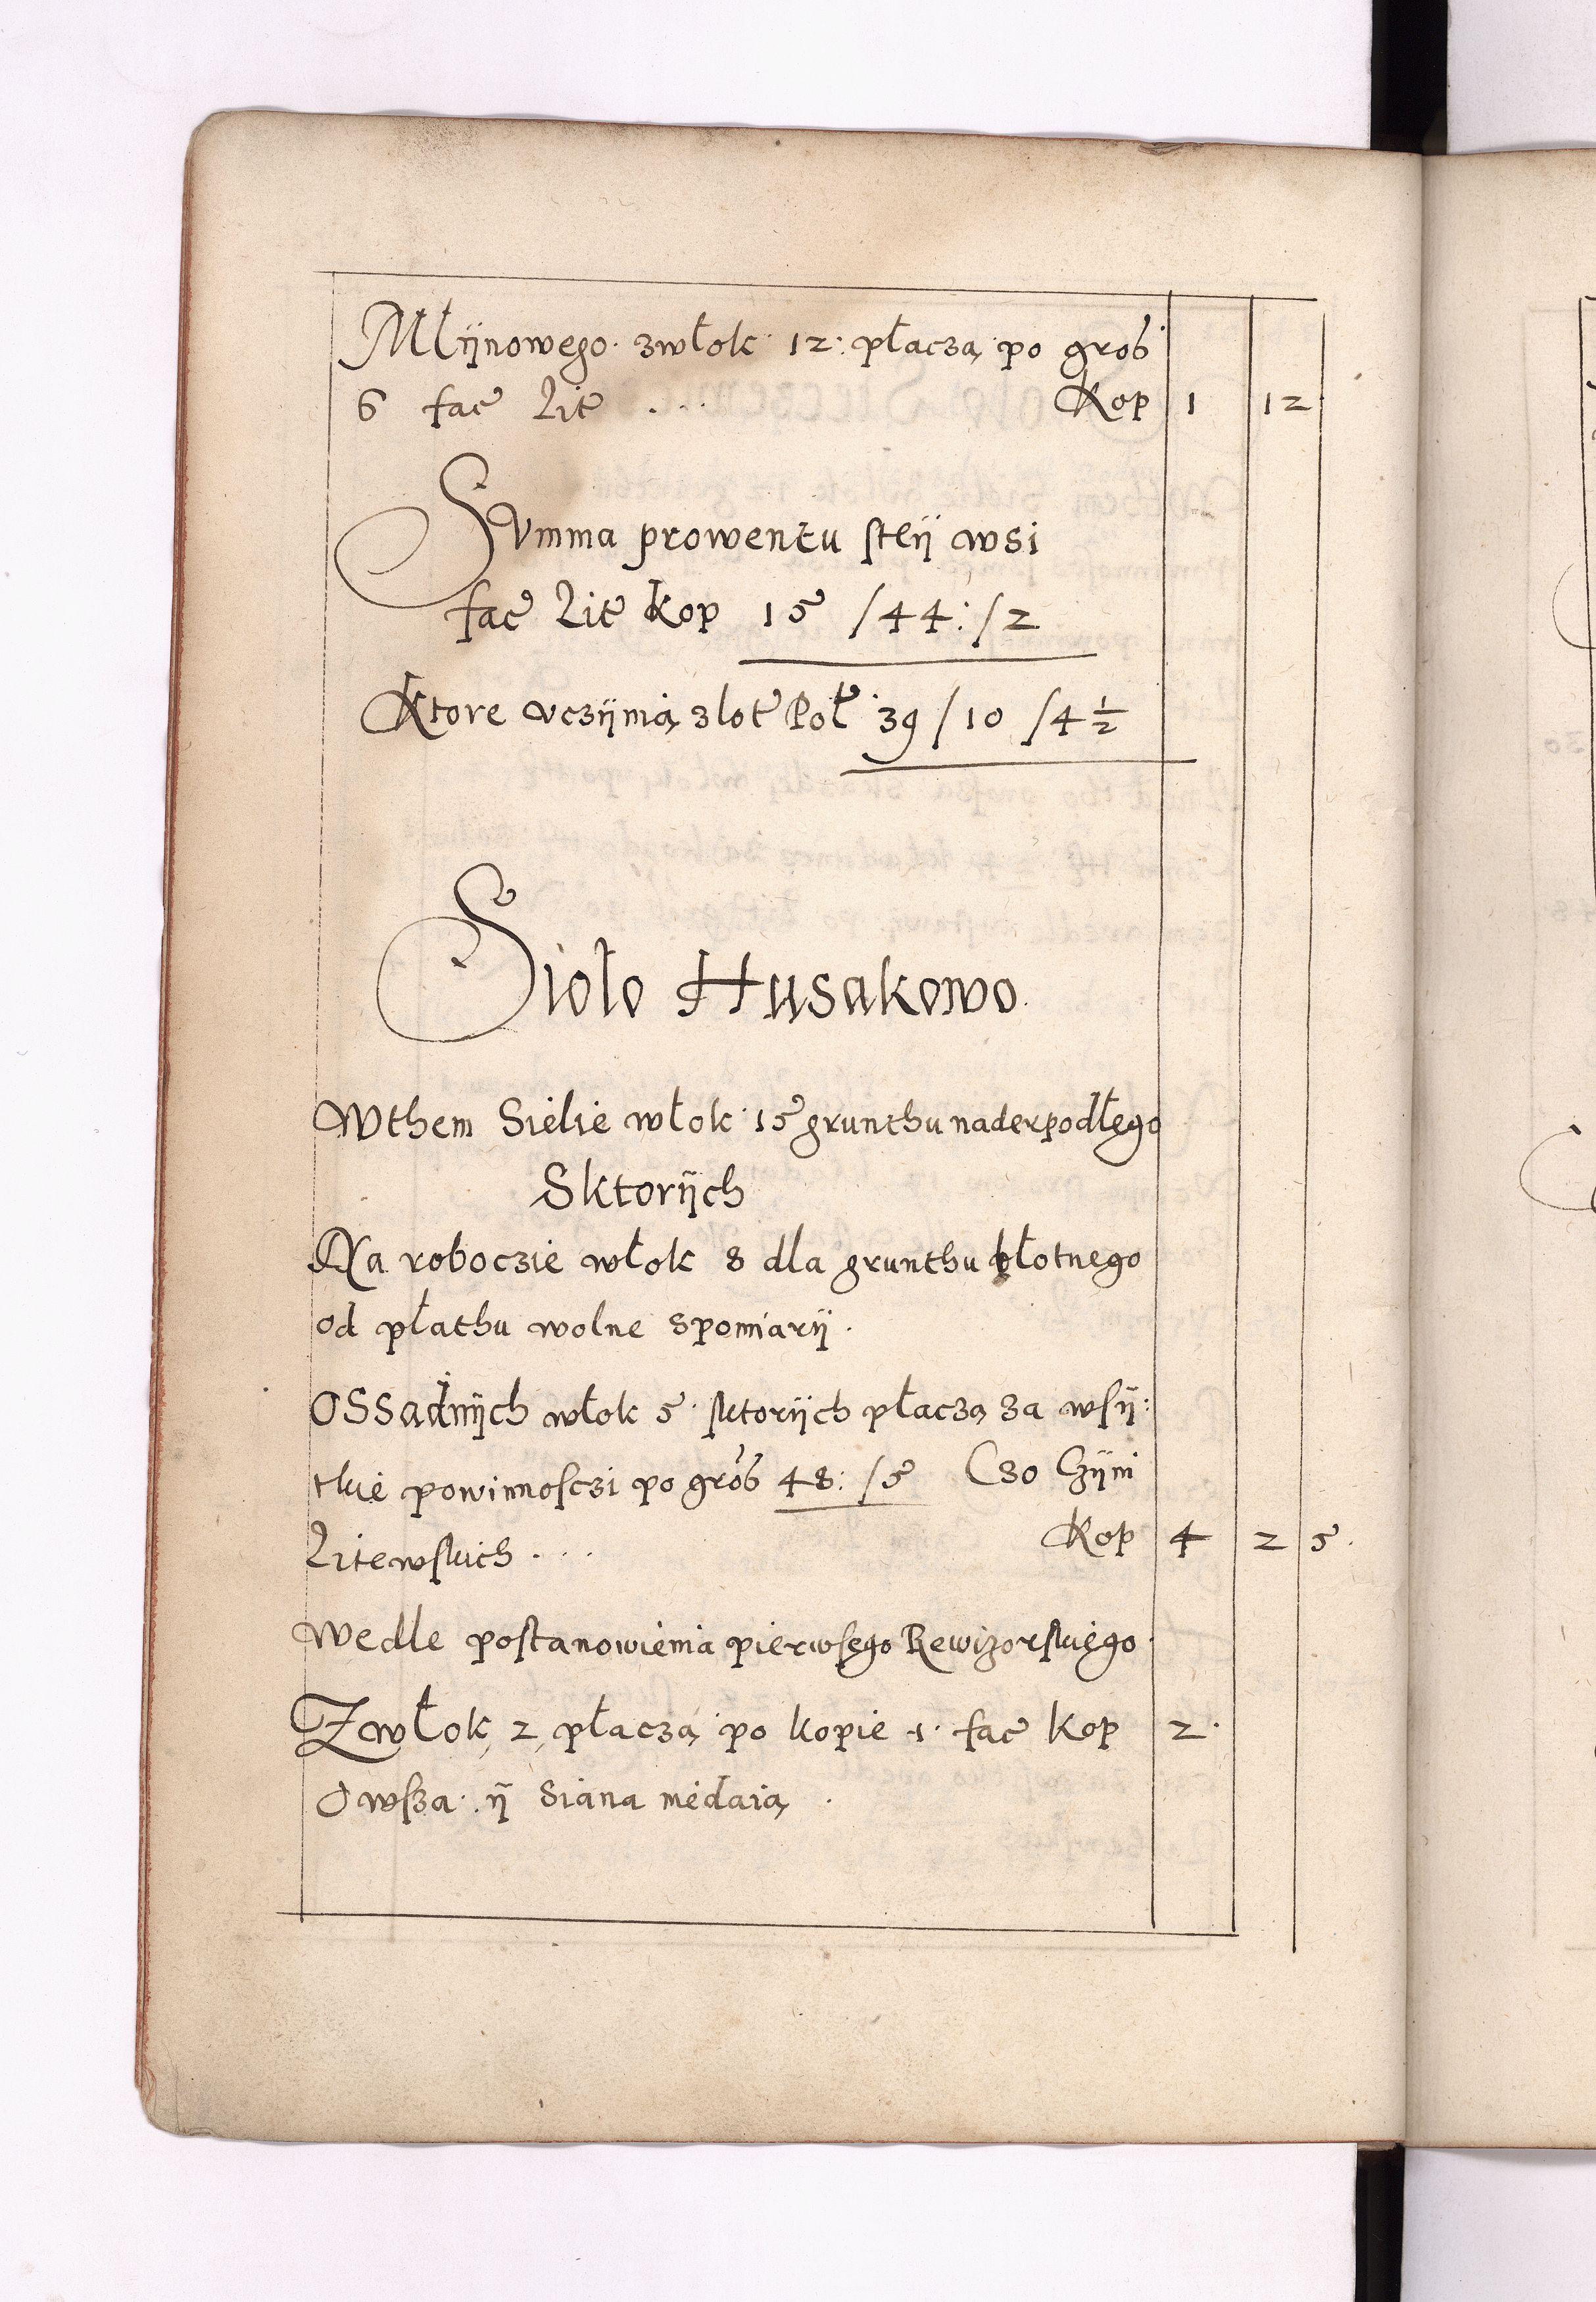 Młÿnowego. zwłok 12: płaczą po grοß
6 fac Lit . . . Kop 1 12
Summa prowentu steÿ wsi
fac Lit kop 15 /44: /2
Ktore vczÿnią zlot Pol 39 /10 /4 ½
Sioło Husakowo.
Wthem Sielie włok 15 grunthu naderpodłego
Sktorÿch
Na roboczie włok 8 dla grunthu błotnego
od płathu wolne spomiarÿ.
Ossadnÿch włok 5. sktorÿch płaczą za wsÿ:
tkie powinnosczi po groß 48: /5 Czo Czÿni
Litewskich . . . Kop 4 2 5.
Wedle postanowienia pierwsego Rewizorskiego.
Zwłok 2 płaczą po kopie 1. fac kop 2.
Owsza. ÿ Siana niedaią.